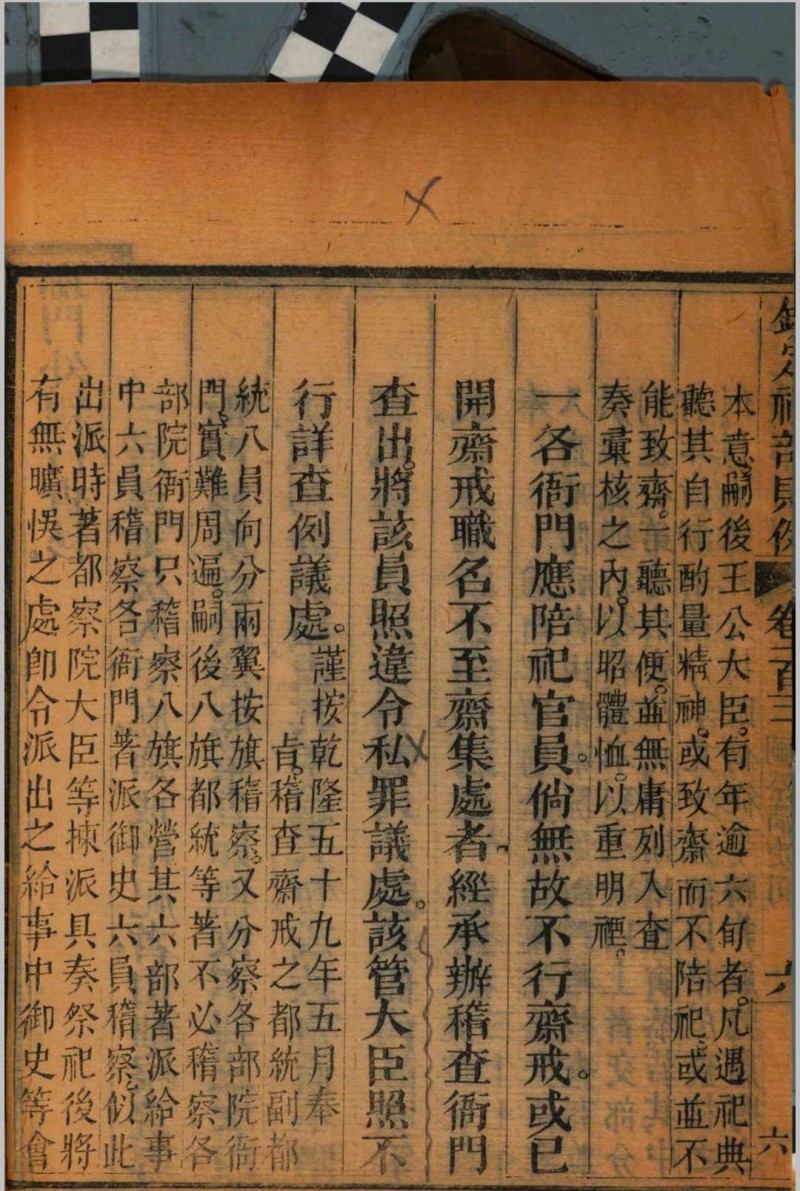 欽定禮部則例 卷一百三 六
本意。嗣後王公大臣。有年逾六旬者。凡遇祀典
聽其自行酌量精神。或致齋而不陪祀。或並不
能致齋。一聽其便。並無庸列入查
奏彙核之內。以昭體恤。以重明禋。
一各衙門應陪祀官員。倘無故不行齋戒。或已
開齋戒職名不至齋集處者。經承辦稽查衙門
查出。將該員照違令私罪議處。該管大臣照不
行詳查例議處。謹按乾隆五十九年五月奉
旨。稽查齋戒之都統副都
統八員向分兩翼按旗稽察。又分察各部院衙
門。實難周遍。嗣後八旗都統等著不必稽察各
部院衙門只稽察八旗各營其六部著派給事
中六員稽察各衙門著派御史六員稽察。似此
出派時著都察院大臣等揀派具奏祭祀後將
有無曠悞之處卽令派出之給事中御史等會